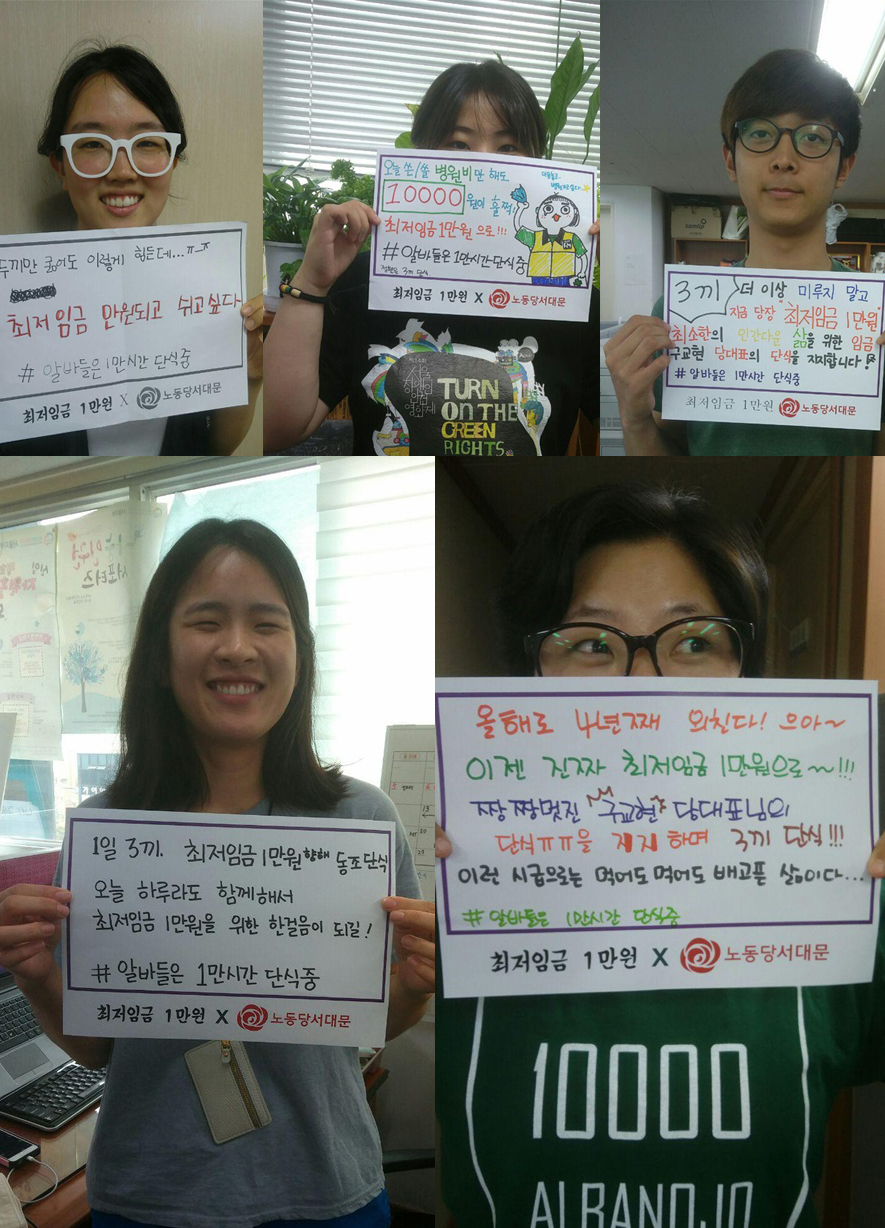 두끼만 굶어도 이렇게 힘든데...ㅠㅈ
최저임금 만원되고 쉬고싶다
# 알바들은 1만시간 단식중
최저임금 1만원 X 노동당서대문
오늘 쓴/쓸 병원비만 해도
10000원이 훌쩍!
최저임금 1만원 으로!!!
#알바들은 1만시간 단식중
3끼 단식
최저임금 1만원 X 노동당서대문
TURN
ON THE
GREEN
RIGHTS
3끼 더 이상 미루지 말고
지금 당장 최저임금 1만원
최소한의 인간다운 삶을 위한 임금
구교현 당대표의 단식을 지지합니다!
# 알바들은 1만시간 단식중
최저임금 1만원 노동당서대문
서포터즈
1일 3끼. 최저임금 1만원 향해 동조단식
오늘 하루라도 함께해서
최저임금 1만원을 위한 한걸음이 되길!
# 알바들은 1만시간 단식중
최저임금 1만원 X 노동당서대문
올해로 4년째 외친다! 으아~
이젠 진짜 최저임금 1만원으로~!!!
짱짱멋진 구교현 당대표님의
단식ㅠㅠ을 지지하며 3끼 단식!!!
이런 시급으로는 먹어도 먹어도 배고픈 삶이다...
# 알바들은 1만시간 단식중
최저임금 1만원 X 노동당서대문
10000
ALBANOJO